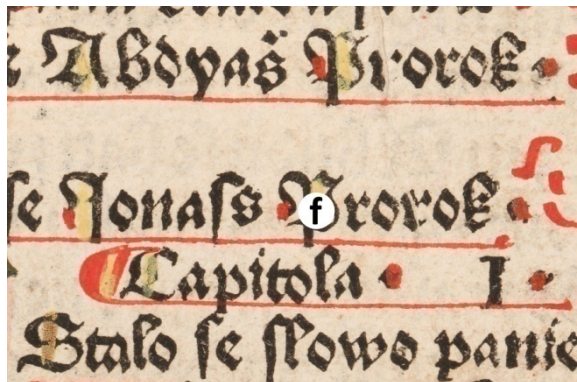 Abdyaš Prorok
se Jonaſs Prorok
Capitola I
Stalo ſe ſlowo panie